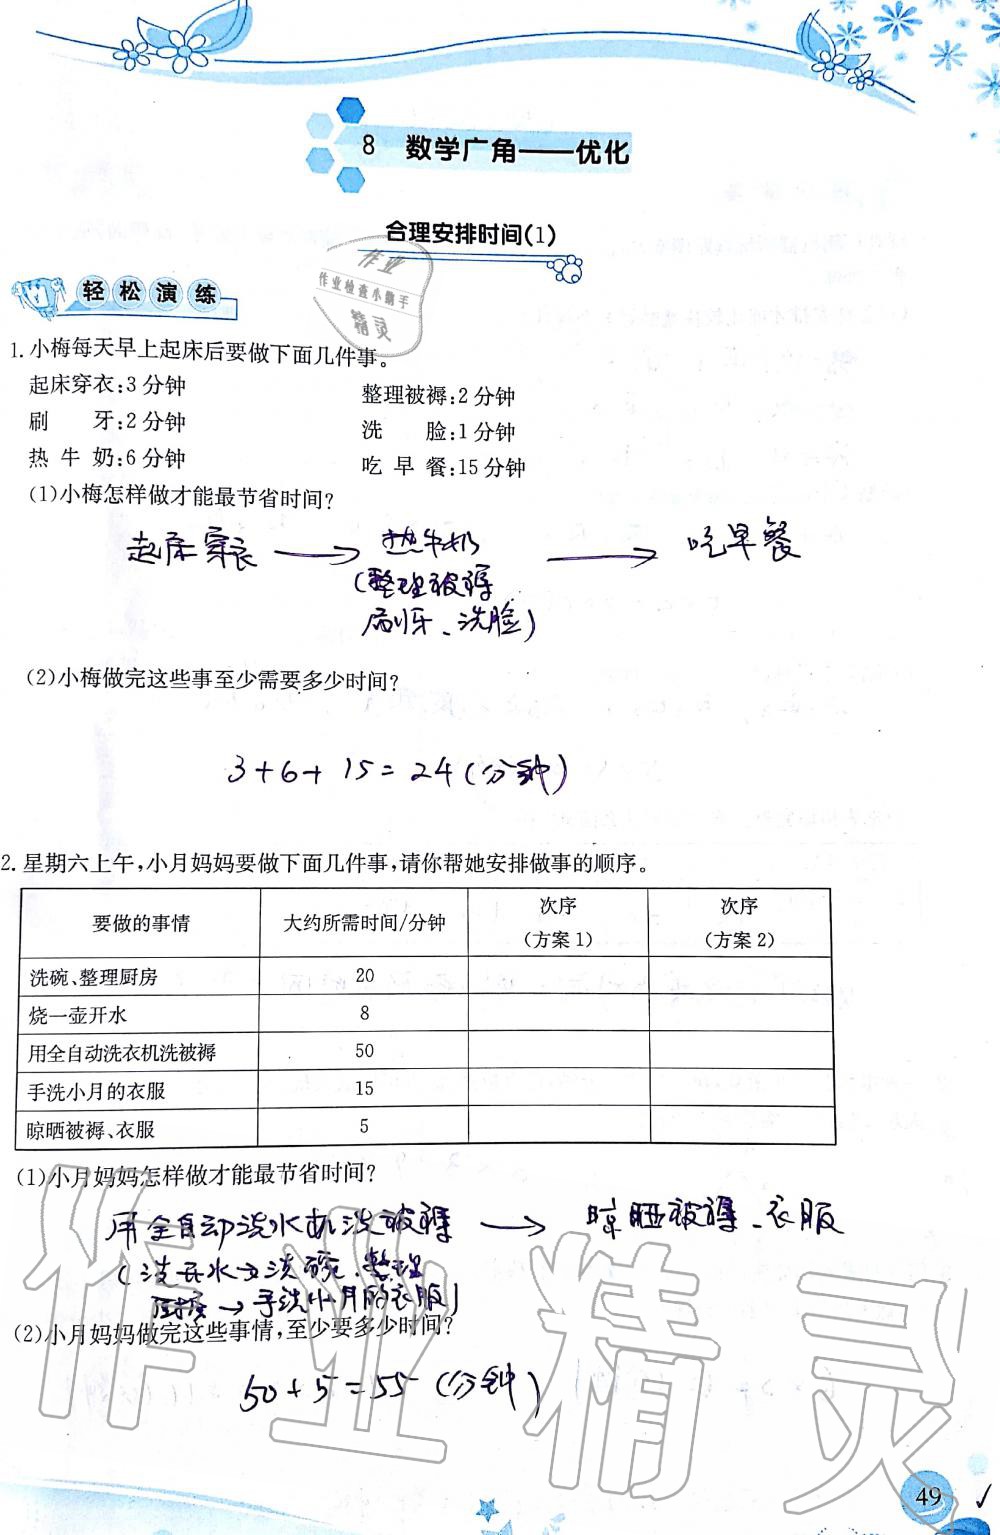 8 数学广角——优化
合理安排时间(1)
作业
作业检查小助手
精灵
轻松演练
1.小梅每天早上起床后要做下面几件事。
起床穿衣:3分钟 整理被褥:2分钟
刷 牙:2分钟 洗 脸:1分钟
热牛奶:6分钟 吃早餐:15分钟
(1)小梅怎样做才能最节省时间?
起床穿衣 → 热牛奶 → 吃早餐
(整理被褥
刷牙、洗脸)
(2)小梅做完这些事至少需要多少时间?
3+6+15=24(分钟)
2.星期六上午,小月妈妈要做下面几件事,请你帮她安排做事的顺序。
要做的事情 大约所需时间/分钟 次序(方案1) 次序(方案2)
洗碗、整理厨房 20
烧一壶开水 8
用全自动洗衣机洗被褥 50
手洗小月的衣服 15
晾晒被褥、衣服 5
(1)小月妈妈怎样做才能最节省时间?
用全自动洗衣机洗被褥 → 晾晒被褥、衣服
开水 洗碗、整理
→手洗小月的衣服)
(2)小月妈妈做完这些事情,至少要多少时间?
50+5=55(分钟)
作业精灵
49